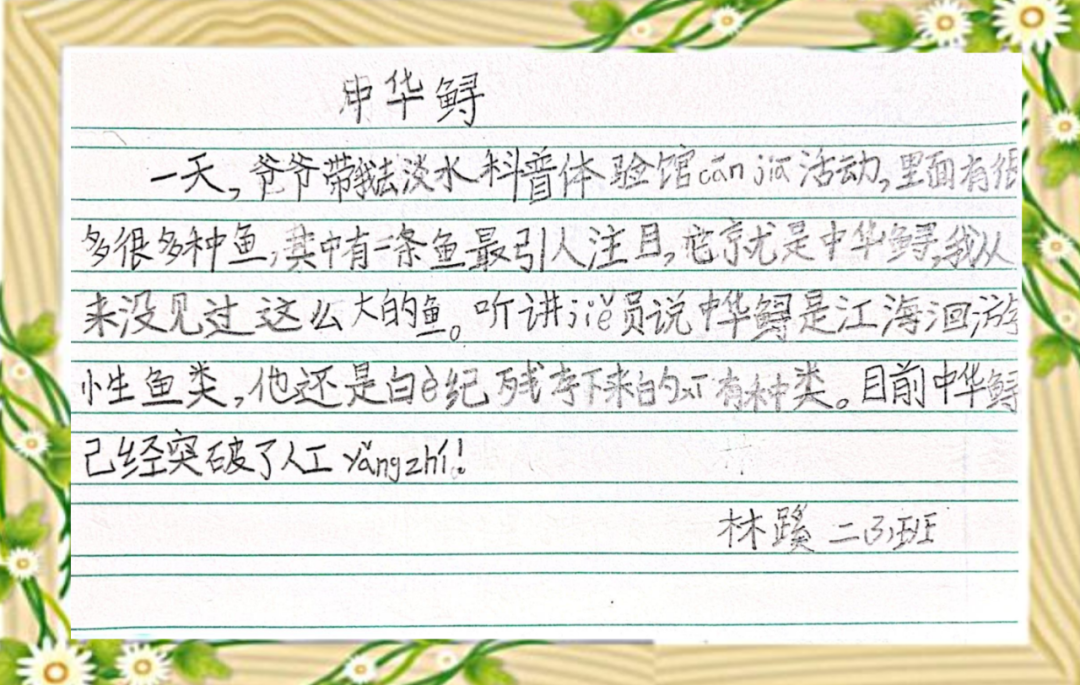 中华鲟
一天,爷爷带我去淡水科普体验馆cān jiā活动,里面有很
多很多种鱼,其中有一条鱼最引人注目,它就是中华鲟,我从
来没见过这么大的鱼。听讲jiě员说中华鲟是江海洄游
性鱼类,他还是白è纪残存下来的有种类。目前中华鲟
已经突破了人工yǎngzhí!
林蹊 二(3)班